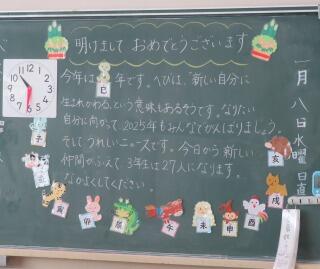 明けまして おめでとうございます
今年は 巳 年です。へびは、"新しい自分に
生まれかわる"という意味もあるそうです。なりたい
自分に向かって、2025年もみんなでがんばりましょう。
そして、うれしいニュースです。今日から新しい
仲間がふえて3年生は27人になります。
なかよくしてください。
一月八日水曜日
日直
子
寅
卯
辰
午
未
申
酉
戌
亥